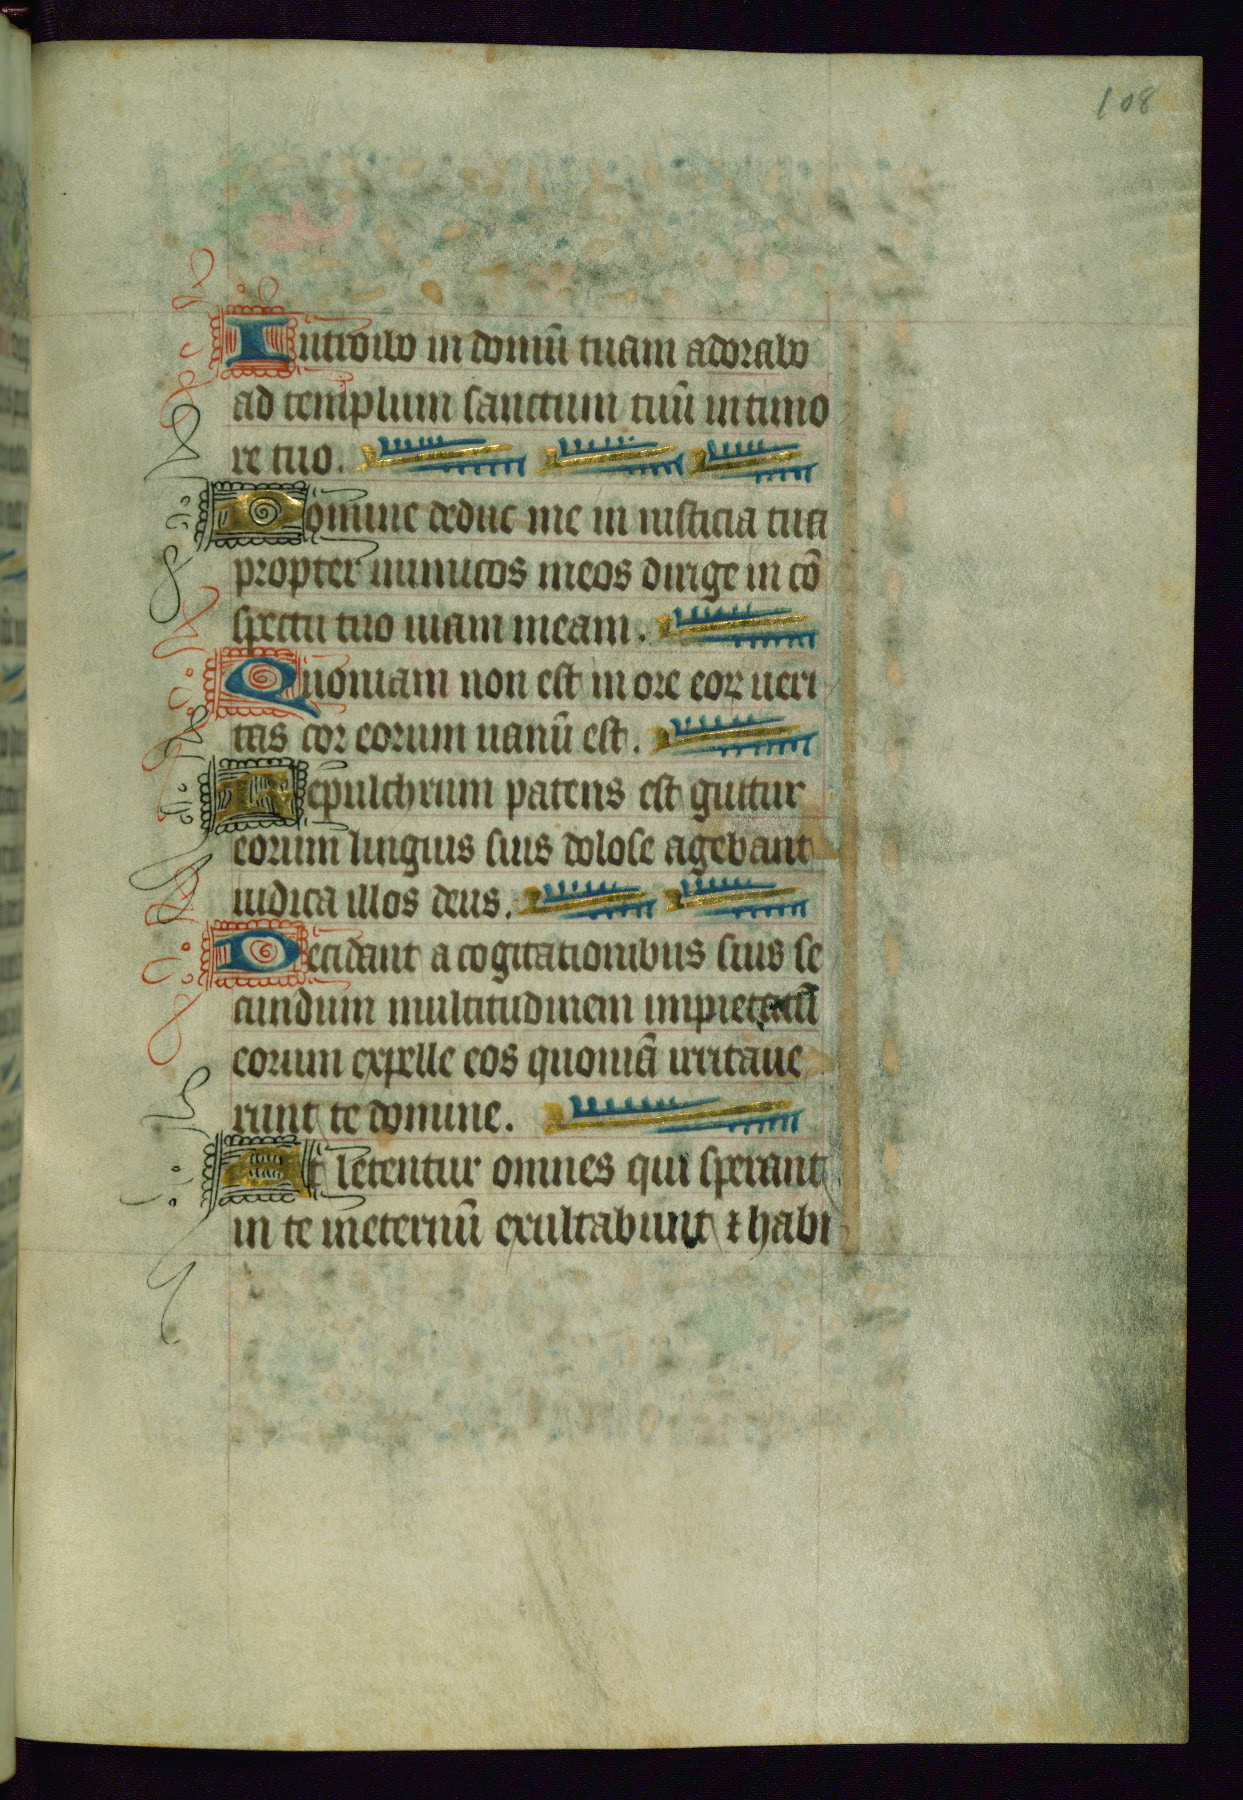 108
Introibo in domū tuam adorabo
ad templum sanctum tuū in timo
re tuo.
Domine deduc me in iusticia tua
propter inimicos meos dirige in cō
spectu tuo uiam meam.
Quoniam non est in ore eoꝝ ueri
tas cor eorum uanū est.
Sepulchrum patens est guttur
eorum linguis suis dolose agebant
iudica illos deus.
Decidant a cogitationibus suis se
cundum multitudinem impietatū
eorum expelle eos quoniā irritaue
runt te domine.
Et letentur omnes qui sperant
in te ineternū exultabunt ⁊ habi